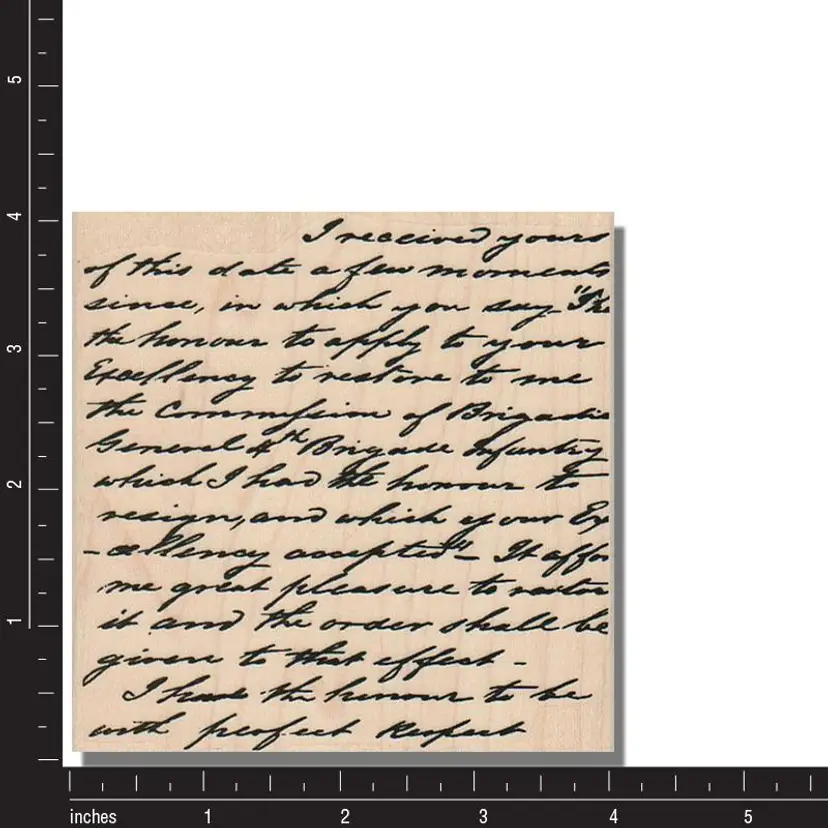 I received yours
of this date a few moments
since, in which you say "The
the honour to apply to your
Excellency to restore to me
the Commission of Brigadie
General 4th Brigade Infantry
which I had the honour to
resign, and which your Ex
-cellency accepted" - It affor
me great pleasure to restore
it and the order shall be
given to that effect -
I have the honour to be
with perfect Respect
5
4
3
2
1
inches 1 2 3 4 5